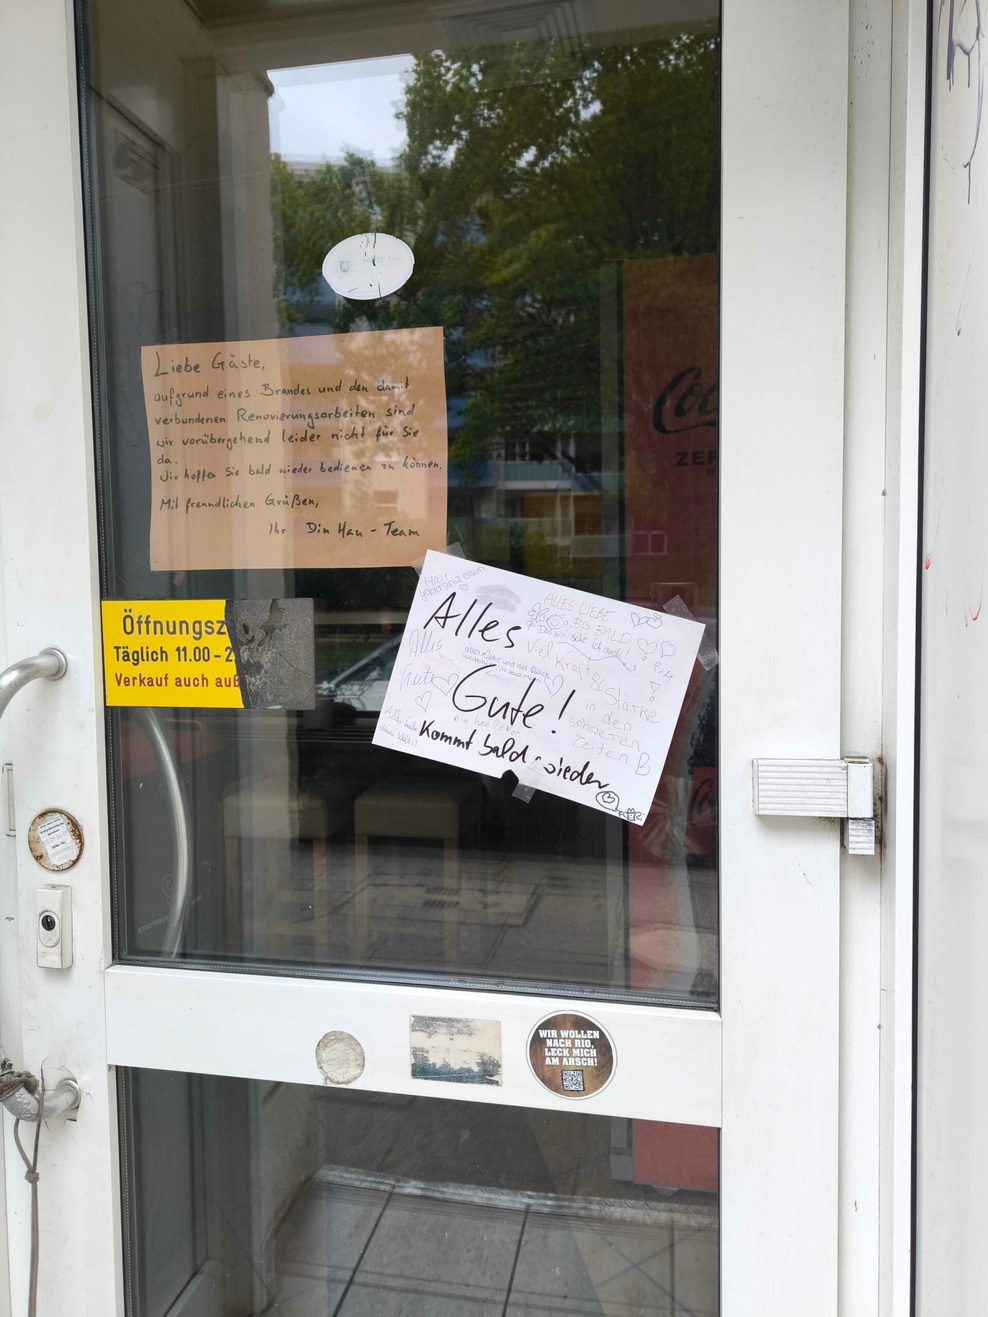 Liebe Gäste,
aufgrund eines Brandes und den damit
verbundenen Renovierungsarbeiten sind
wir vorübergehend leider nicht für Sie
da.
Wir hoffen Sie bald wieder bedienen zu können.
Mit freundlichen Grüßen,
Ihr Din Hau - Team
Öffnungsz
Täglich 11.00 - 2
Verkauf auch auß
Alles
Gute!
Kommt bald wieder
ALLES LIEBE
BIS BALD
Das wünsche ich auch!
Viel Kraft & Stärke
in den
schweren
Zeiten
Alles
Gute
Coc
ZER
WIR WOLLEN
NACH RIO,
LECK MICH
AM ARSCH!